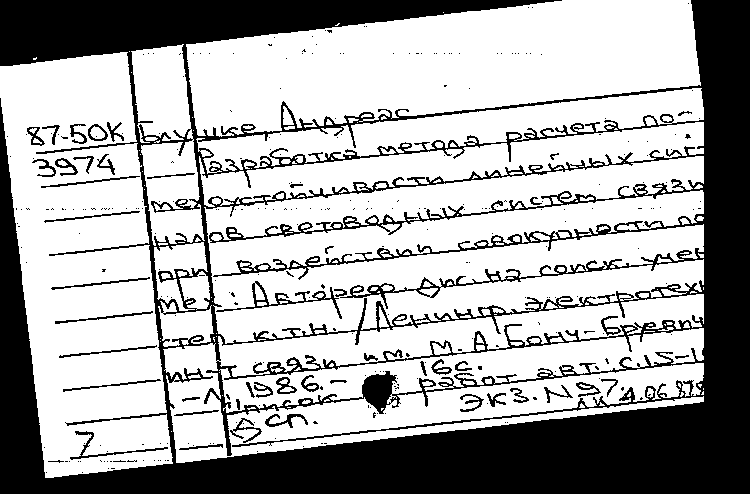 87-50К Блушке, Андреас
3974 Разработка метода расчета по-
мехоустойчивости линейных сиг-
налов световодных систем связи
при воздействии совокупности по
мех: Автореф. дис. на соиск. учен
степ. к.т.н. / Ленингр. электротехн
ин-т связи им. М. А. Бонч-Бруевич
.-Л., 1986.- 16с.
Список работ авт.: с.15-1
Дсп. ЭКЗ. N 97.
7 4.06.87